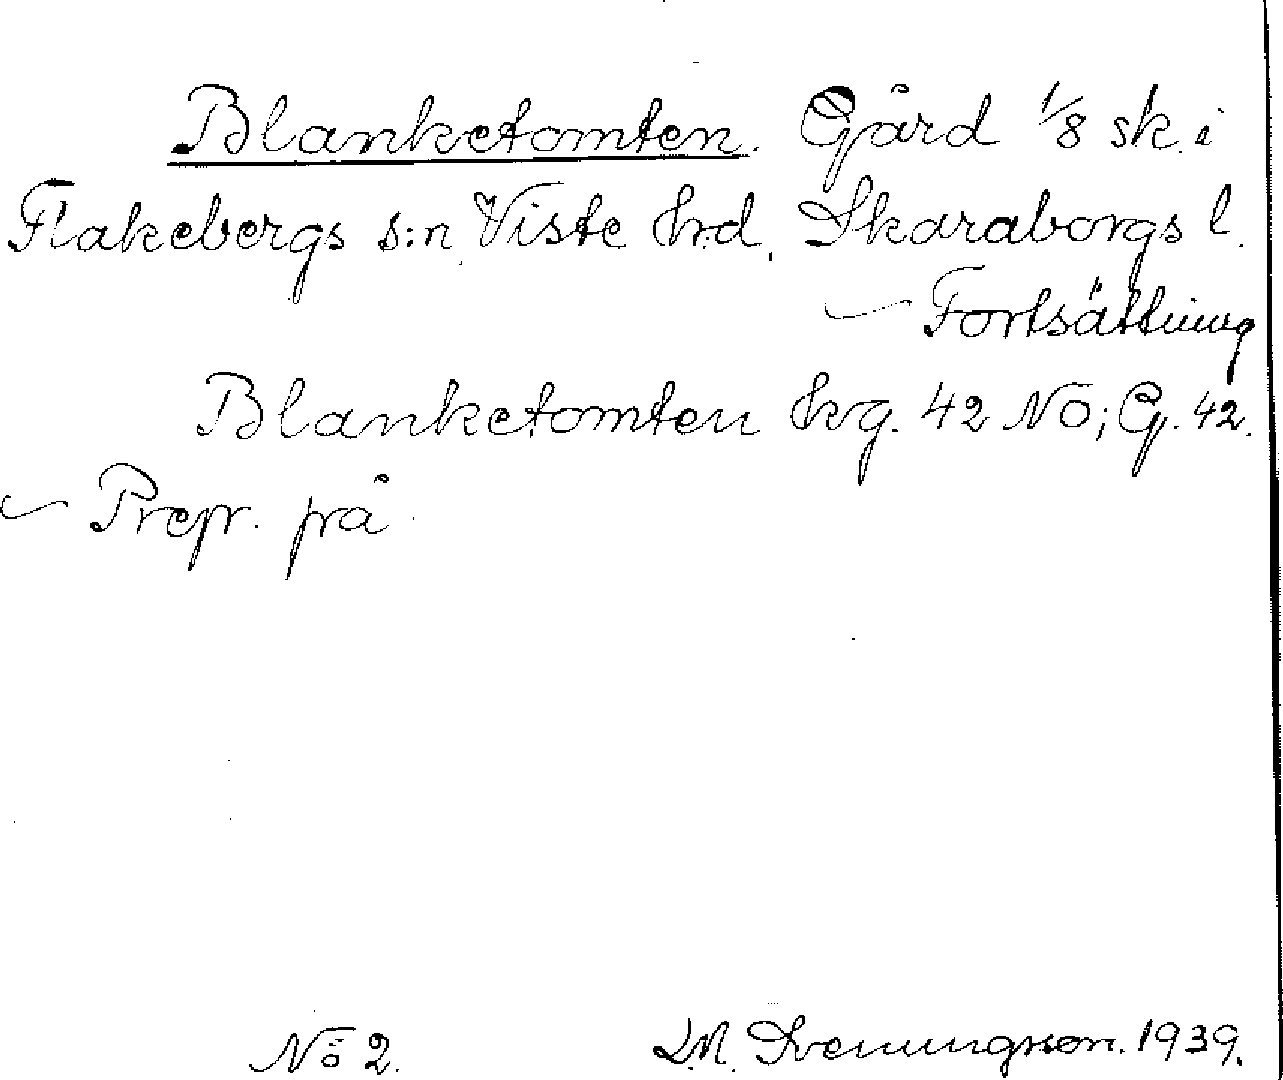 Blanketomten. Gård 1/8 sk. i
Flakebergs s:n, Viste hrd, Skaraborgs l.
– Fortsättning
Blanketomten hvg. 42 NO; G. 42.
– Prep. på
No 2. D.M. Svenungsson. 1939.